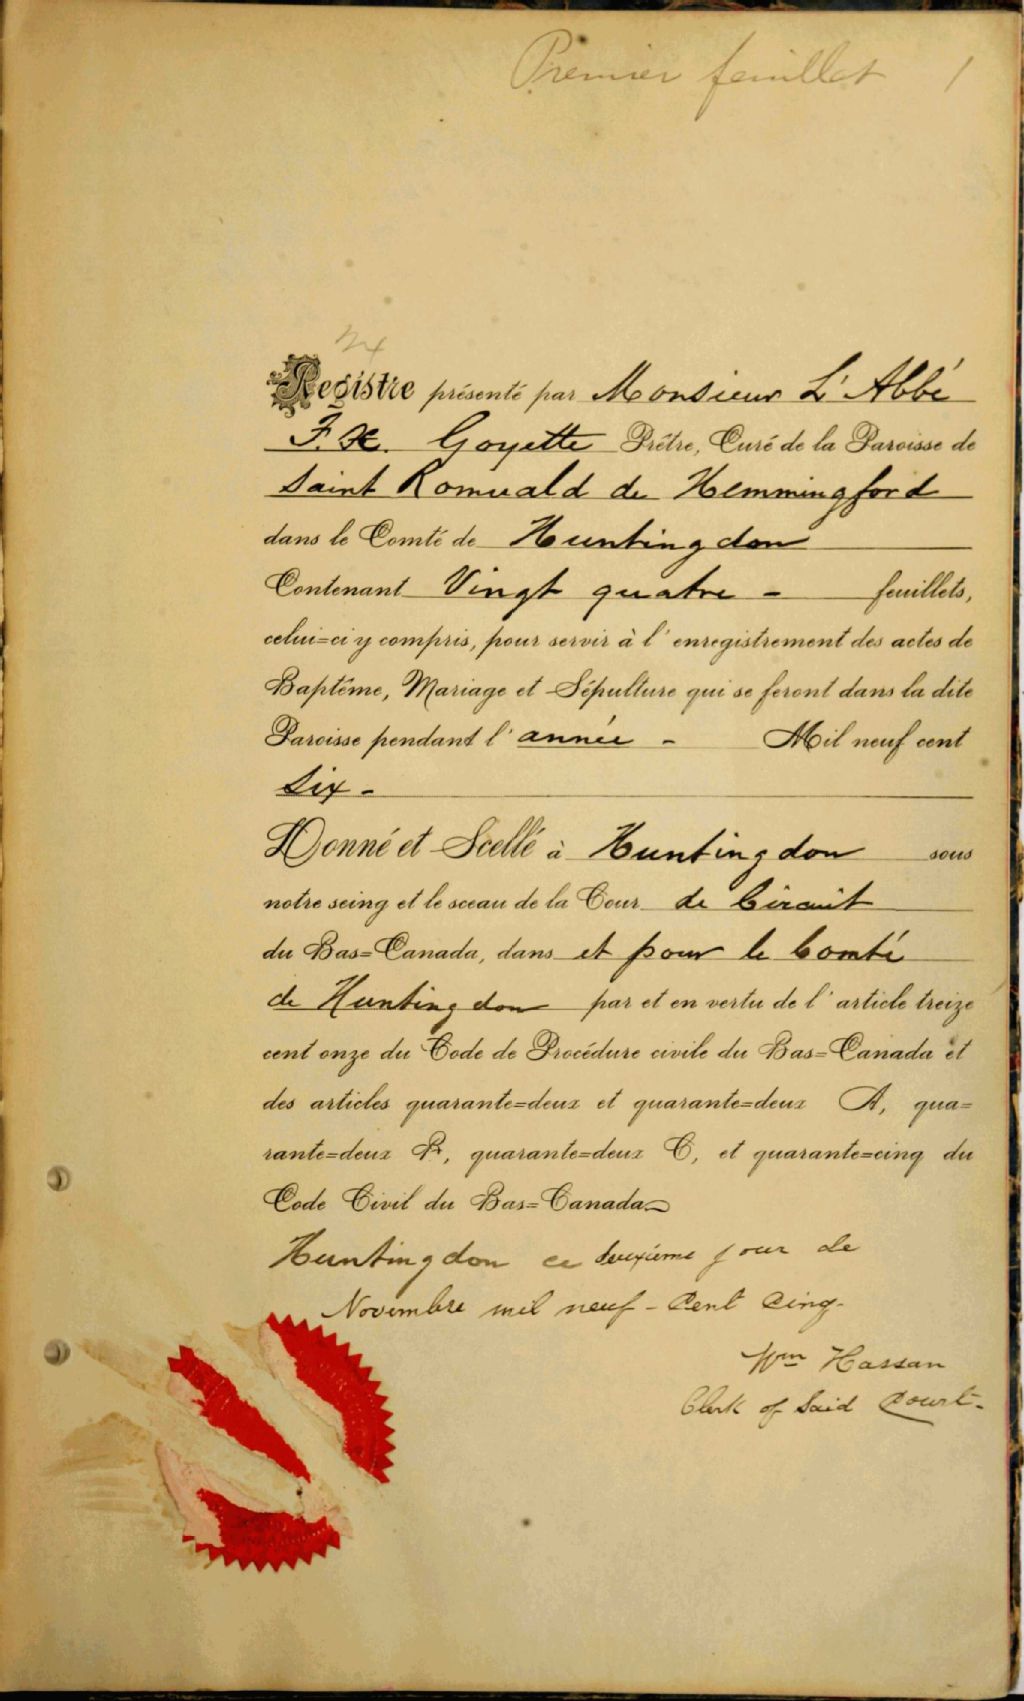 Premier feuillet 1
24
Registre présenté par Monsieur L'Abbé
F. X. Goyette Prêtre, Curé de la Paroisse de
Saint Romuald de Hemmingford
dans le Comté de Huntingdon
Contenant Vingt quatre - feuillets,
celui=ci y compris, pour servir à l'enregistrement des actes de
Baptême, Mariage et Sépulture qui se feront dans la dite
Paroisse pendant l'année - Mil neuf cent
Six -
Donné et Scellé à Huntingdon sous
notre seing et le sceau de la Cour de Circuit
du Bas=Canada, dans et pour le Comté
de Huntingdon par et en vertu de l'article treize
cent onze du Code de Procédure civile du Bas=Canada et
des articles quarante=deux et quarante=deux A, qua=
rante=deux B, quarante=deux C, et quarante=cinq du
Code Civil du Bas=Canada
Huntingdon ce deuxième jour de
Novembre mil neuf - Cent Cinq -
Wm Hassan
Clerk of Said Court -